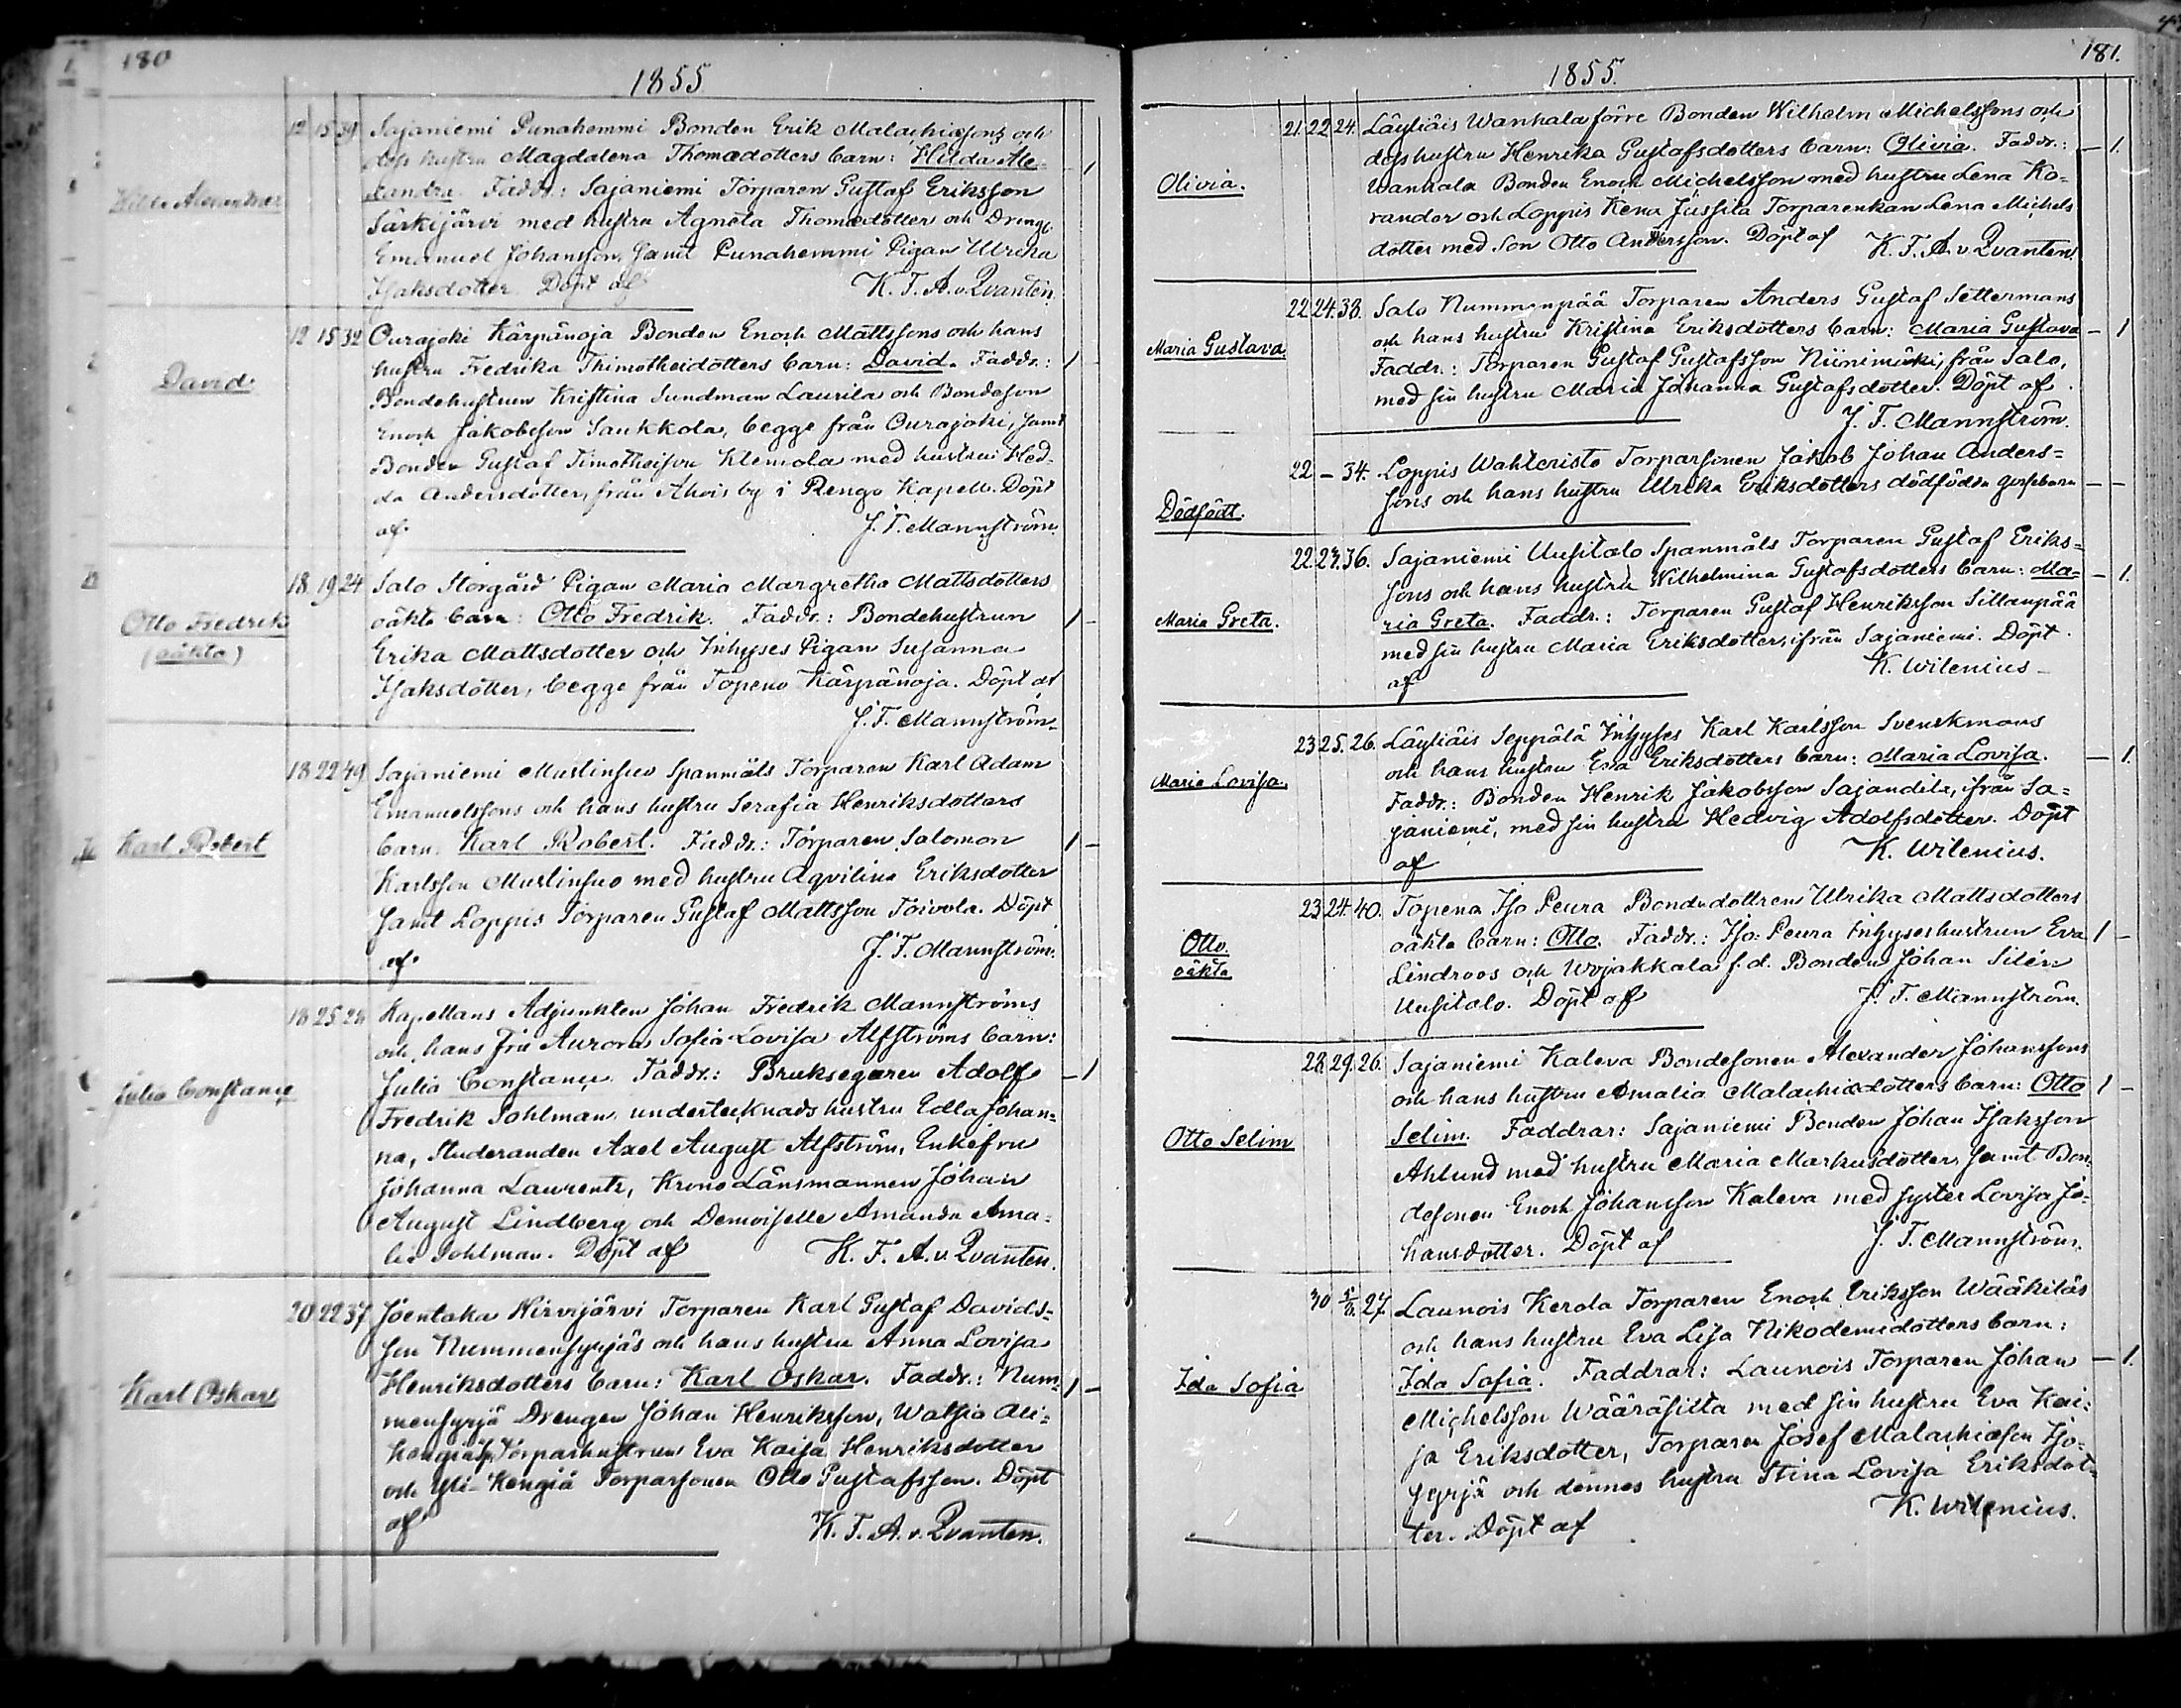 180
1855
Hilda Alexandra
12 15 39 Sajaniemi Punahemmi Bonden Erik Malachiæsons och
dess hustru Magdalena Thomædotters barn: Hilda Ale-
xandra. Faddr.: Sajaniemi Torparen Gustaf Eriksson
Särkijärvi med hustru Agneta Thomædotter och Dreng.
Emanuel Johansson, samt Punahemmi Pigan Ulrika
Isaksdotter. Döpt af K. F. A. v. Qvanten.
David
12 15 32 Ourajoki Kärpänoja Bonden Enoch Mattssons och hans
hustru Fredrika Thimotheidotters barn: David. Faddr.:
Bondehustrun Kristina Sundman Laurila och Bondeson
Enoch Jakobsson Saukkola, begge från Ourajoki, samt
Bonden Gustaf Timotheison Klemola med hustru Hed-
da Andersdotter, från Ahois by i Rengo Kapell. Döpt
af J. F. Mannström.
Otto Fredrik
(oäkta)
18 19 24 Salo Storgård Pigan Maria Margretha Mattsdotters
oäkta barn: Otto Fredrik. Faddr.: Bondehustrun
Erika Mattsdotter och Inhyses Pigan Susanna
Isaksdotter, begge från Topeno Kärpänoja. Döpt af
J. F. Mannström.
Karl Robert
18 22 49 Sajaniemi Mustinsuo Spanmåls Torparen Karl Adam
Emanuelssons och hans hustru Serafia Henriksdotters
barn: Karl Robert. Faddr.: Torparen Salomon
Karlsson Mustinsuo med hustru Aqvilina Eriksdotter
samt Loppis Torparen Gustaf Mattsson Toivola. Döpt
af J. F. Mannström.
Julia Constance
18 25 24 Kapellans Adjunkten Johan Fredrik Mannströms
och hans Fru Aurora Sofia Lovisa Alfströms barn:
Julia Constance. Faddr.: Bruksegaren Adolf
Fredrik Sohlman, undertecknads hustru Edla Johan-
na, Studeranden Axel August Alfström, Enkefru
Johanna Laurents, Krono Länsmannen Johan
August Lindberg och Demoiselle Amanda Ama-
lia Sohlman. Döpt af K. F. A. v. Qvanten.
Karl Oskar
20 22 37 Joentaka Hirvijärvi Torparen Karl Gustaf Davids-
son Nummensyrjäs och hans hustru Anna Lovisa
Henriksdotters barn: Karl Oskar. Faddr.: Num-
mensyrjä Drengen Johan Henriksson, Watsia Ali-
kengiäs Torparhustrun Eva Kaisa Henriksdotter
och Yli-Kengiä Torparsonen Otto Gustafsson. Döpt
af K. F. A. v. Qvanten.
181.
1855.
Olivia.
21. 22. 24. Läyliäis Wanhala förre Bonden Wilhelm Michelssons och
dess hustru Henrika Gustafsdotters barn: Olivia. Faddr.: — 1.
Wanhala Bonden Enoch Michelsson med hustru Lena Ko-
rander och Loppis Kena Jussila Torparenkan Lena Michels
dotter med son Otto Andersson. Döpt af K. F. A. v. Qvanten.
Maria Gustava
22. 24. 38. Salo Nummenpää Torparen Anders Gustaf Settermans
och hans hustru Kristina Eriksdotters barn: Maria Gustava — 1
Faddr.: Torparen Gustaf Gustafsson Niinimäki, från Salo,
med sin hustru Maria Johanna Gustafsdotter. Döpt af
J. F. Mannström.
Dödfödt.
22 — 34. Loppis Wahteristo Torparsonen Jakob Johan Anders=
sons och hans hustru Ulrika Eriksdotters dödfödda gossebarn — —
Maria Greta.
22. 23. 36. Sajaniemi Uusitalo Spanmåls Torparen Gustaf Eriks=
sons och hans hustru Wilhelmina Gustafsdotters barn: Ma- — 1.
ria Greta. Faddr.: Torparen Gustaf Henriksson Sillanpää
med sin hustru Maria Eriksdotter, ifrån Sajaniemi. Döpt
af K. Wilenius
Maria Lovisa.
23 25. 26. Läyliäis Seppälä Inhyses Karl Karlsson Svenskmans
och hans hustru Eva Eriksdotters barn: Maria Lovisa. — 1.
Faddr.: Bonden Henrik Jakobsson Sajandila, ifrån Sa=
janiemi, med sin hustru Hedvig Adolfsdotter. Döpt
af K. Wilenius.
Otto.
oäkta
23 24. 40. Topeno Iso Peura Bondedottren Ulrika Mattsdotters
oäkta barn: Otto. Faddr.: Iso-Peura Inhyseshustrun Eva 1 —
Lindroos och Wojakkala f.d. Bonden Johan Silén
Uusitalo. Döpt af J. F. Mannström.
Otto Selim
28. 29. 26. Sajaniemi Kaleva Bondesonen Alexander Johanssons
och hans hustru Amalia Malachiædotters barn: Otto 1 —
Selim. Faddrar: Sajaniemi Bonden Johan Isaksson
Ahlund med hustru Maria Markusdotter, samt Bon-
desonen Enoch Johansson Kaleva med syster Lovisa Jo-
hansdotter. Döpt af J. F. Mannström.
Ida Sofia
30 27 Launois Kerola Torparen Enoch Eriksson Wääkiläs
och hans hustru Eva Lisa Nikodemidotters barn:
Ida Sofia. Faddrar: Launois Torparen Johan — 1.
Michelsson Wääräsilta med sin hustru Eva Kai-
sa Eriksdotter, Torparen Josef Malachiæson Iso-
syrjä och dennes hustru Stina Lovisa Eriksdot-
ter. Döpt af K. Wilenius.